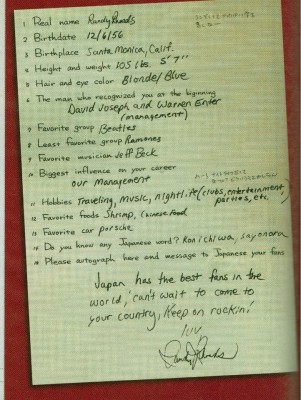 1 Real name Randy Rhoads
2 Birthdate 12/6/56
3 Birthplace Santa Monica, Calif.
4 Height and weight 105 lbs. 5' 7"
5 Hair and eye color Blonde/Blue
6 The man who recognized you at the beginning
David Joseph and Warren Entner
(management)
7 Favorite group Beatles
8 Least favorite group Ramones
9 Favorite musician Jeff Beck
10 Biggest influence on your career
our Management
11 Hobbies Traveling, Music, nightlife (clubs, entertainment,
parties, etc.
12 Favorite foods Shrimp, Chinese food
13 Favorite car porsche
14 Do you know any Japanese word? Konichiwa, sayonara
15 Please autograph here and message to Japanese your fans
Japan has the best fans in the
world, can't wait to come to
your country, Keep on rockin!
luv
Randy Rhoads